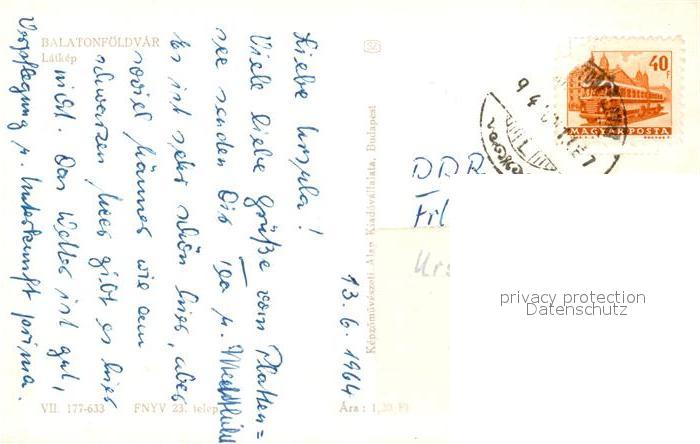 BALATONFÖLDVÁR
Látkép
Liebe Ursula!
Viele liebe Grüße vom Platten=
see senden Dir
Es ist sehr schön hier, aber
soviel Männer wie am
schwarzen Meer gibt es hier
nicht. Das Wetter ist gut,
Verpflegung u. Unterkunft prima.
13. 6. 1964
Képzőművészeti Alap Kiadóvállalata, Budapest
VII. 177-633
FNYV 23. telep
Ára : 1,20 Ft
40 F.
MAGYAR POSTA
DDR
Frl
Urs
privacy protection
Datenschutz